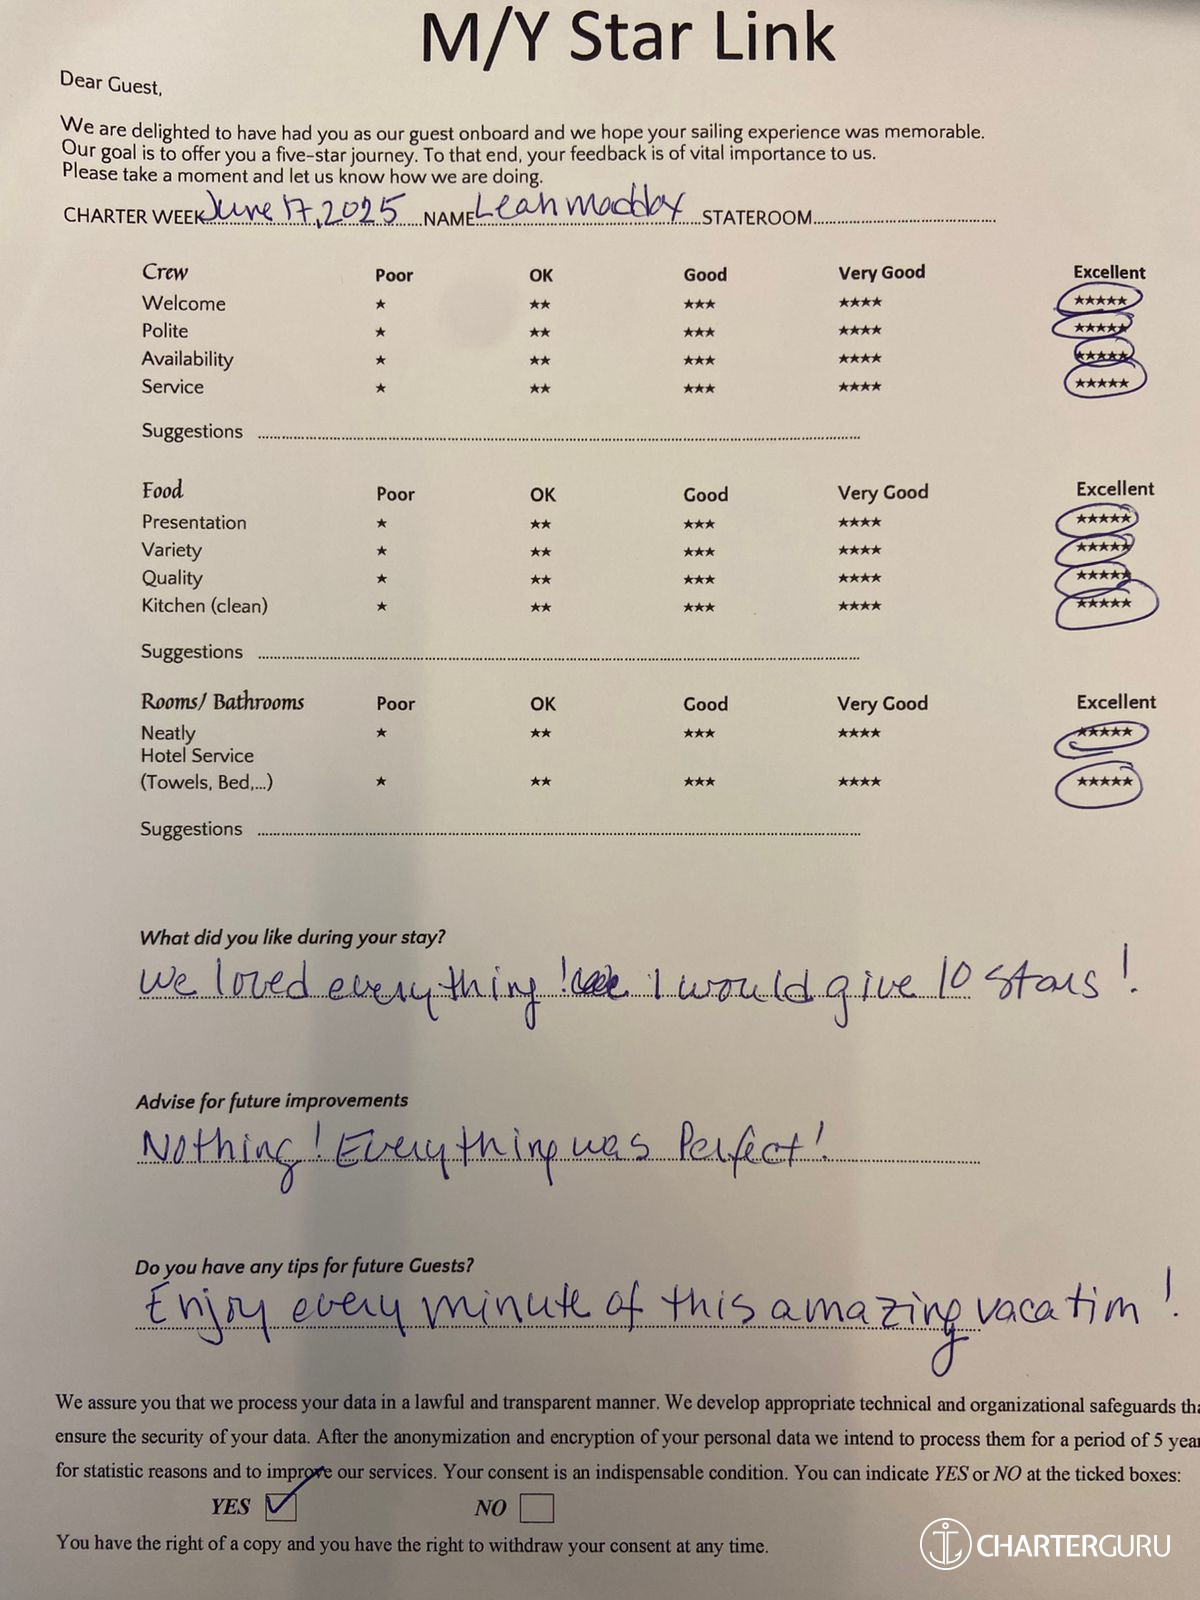 M/Y Star Link
Dear Guest,
We are delighted to have had you as our guest onboard and we hope your sailing experience was memorable.
Our goal is to offer you a five-star journey. To that end, your feedback is of vital importance to us.
Please take a moment and let us know how we are doing.
CHARTER WEEK June 17, 2025 NAME Leah Maddox STATEROOM
Crew Poor OK Good Very Good Excellent
Welcome ★ ★★ ★★★ ★★★★ ★★★★★
Polite ★ ★★ ★★★ ★★★★ ★★★★★
Availability ★ ★★ ★★★ ★★★★ ★★★★★
Service ★ ★★ ★★★ ★★★★ ★★★★★
Suggestions
Food Poor OK Good Very Good Excellent
Presentation ★ ★★ ★★★ ★★★★ ★★★★★
Variety ★ ★★ ★★★ ★★★★ ★★★★★
Quality ★ ★★ ★★★ ★★★★ ★★★★★
Kitchen (clean) ★ ★★ ★★★ ★★★★ ★★★★★
Suggestions
Rooms/ Bathrooms Poor OK Good Very Good Excellent
Neatly ★ ★★ ★★★ ★★★★ ★★★★★
Hotel Service
(Towels, Bed,...) ★ ★★ ★★★ ★★★★ ★★★★★
Suggestions
What did you like during your stay?
We loved everything! I would give 10 stars!
Advise for future improvements
Nothing! Everything was Perfect!
Do you have any tips for future Guests?
Enjoy every minute of this amazing vacation!
We assure you that we process your data in a lawful and transparent manner. We develop appropriate technical and organizational safeguards tha
ensure the security of your data. After the anonymization and encryption of your personal data we intend to process them for a period of 5 year
for statistic reasons and to improve our services. Your consent is an indispensable condition. You can indicate YES or NO at the ticked boxes:
YES NO
You have the right of a copy and you have the right to withdraw your consent at any time.
CHARTERGURU